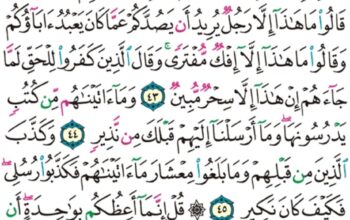 قَالُوا۟ مَا هَـٰذَآ إِلَّا رَجُلٌ يُرِيدُ أَن يَصُدَّكُمْ عَمَّا كَانَ يَعْبُدُ ءَابَآؤُكُمْ
وَقَالُوا۟ مَا هَـٰذَآ إِلَّآ إِفْكٌ مُّفْتَرًى ۚ وَقَالَ ٱلَّذِينَ كَفَرُوا۟ لِلْحَقِّ لَمَّا
جَآءَهُمْ إِنْ هَـٰذَآ إِلَّا سِحْرٌ مُّبِينٌ ٤٣ وَمَآ ءَاتَيْنَـٰهُم مِّن كُتُبٍ
يَدْرُسُونَهَا ۖ وَمَآ أَرْسَلْنَآ إِلَيْهِمْ قَبْلَكَ مِن نَّذِيرٍ ٤٤ وَكَذَّبَ
ٱلَّذِينَ مِن قَبْلِهِمْ وَمَا بَلَغُوا۟ مِعْشَارَ مَآ ءَاتَيْنَـٰهُمْ فَكَذَّبُوا۟ رُسُلِى ۖ
فَكَيْفَ كَانَ نَكِيرِ ٤٥ قُلْ إِنَّمَآ أَعِظُكُم بِوَٰحِدَةٍ ۖ أَن